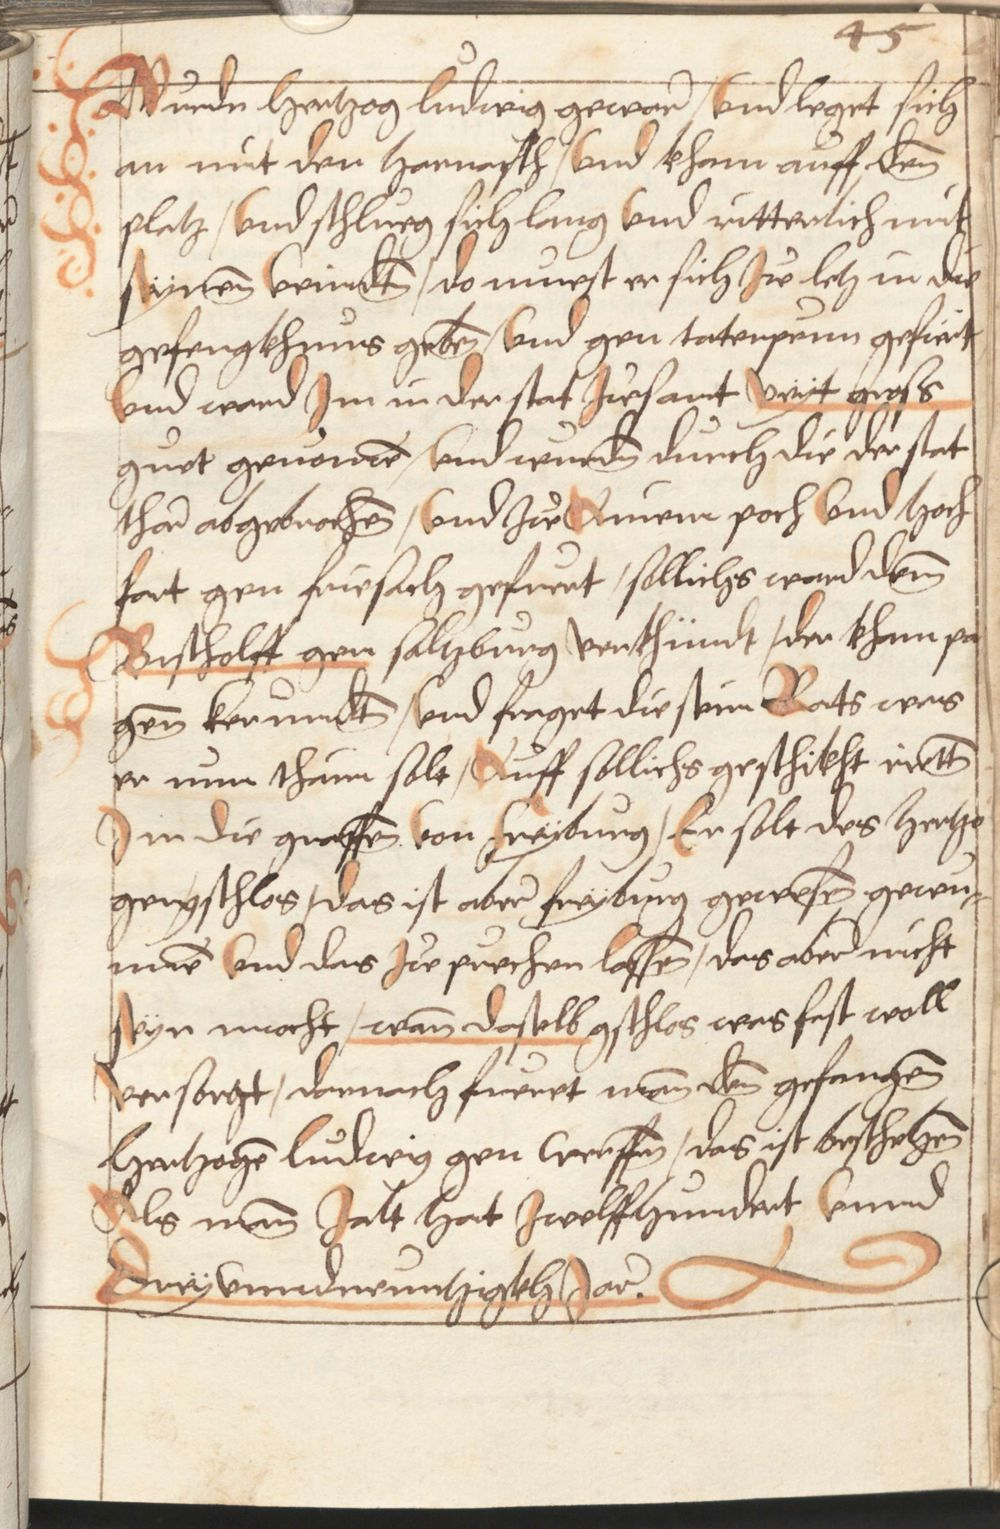 45
Wurdn hertzog ludwig gewar / Und leget sich
an mit den harnasch / Und kham auff den
platz / Und schlueg sich lang Und ritterlich mit
seynen veindten / do muest er sich zu letz in die
gefengkhnus geben / Und gen tatenpeun gefuert
Und ward Im in der stat zusamt Vyt gross
guet genomen / Und wurden durch die der stat
thar abgebrochen / Und zu Ainem poch Und hoch
fart gen friesach gefuert / sollichs ward dem
Bischolff gen saltzburg verkhündt / der kham pa
gen kerundten / Und fraget die sein Rats was
er nun thain solt / Auff sollichs geschikht rietten
Im die graffen von freyburg / Er solt des hertzo
gen gschlos / das ist aber freyburg gewesen gewu=
nnen Und das zu prechen lassen / das aber nicht
seyn mocht / wan daselb gschlos was fast woll
versorgt / darnach fueret man den gefangen
hertzogen ludwig gen werffen / das ist beschehen
Als man Zalt hat Zwelffhundert Unnd
Dreyunndneuntzigkh Jar.